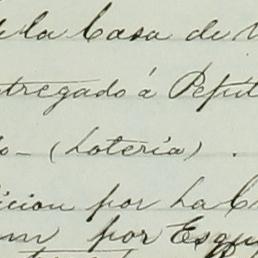 de la Casa de
ntregado á Pepit
o - (Lotería) .
icion por La C
um por Esqu